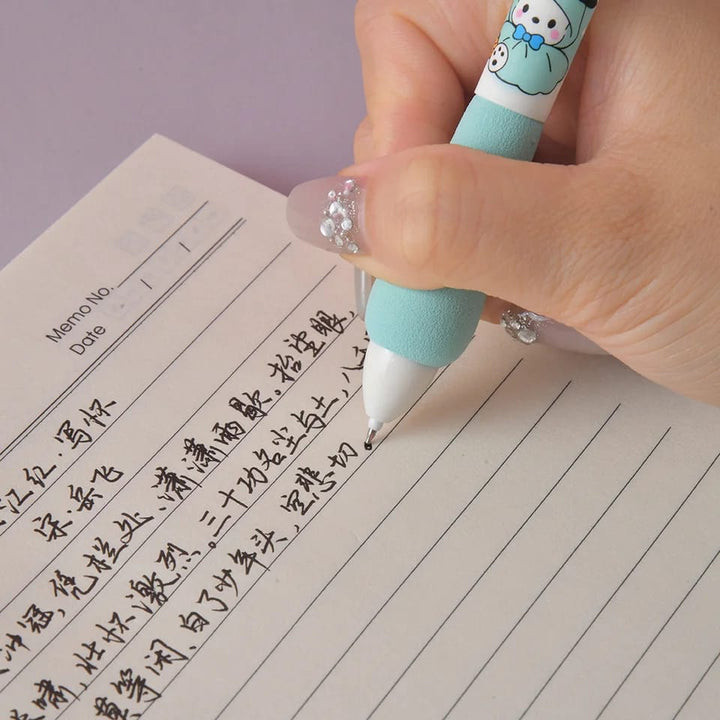 Memo No.
Date / /
江红.写怀
宋.岳飞
冲冠,凭栏处、潇潇雨歇。抬望眼、
啸,壮怀激烈。三十功名尘与土,八
莫等闲、白了少年头,空悲切